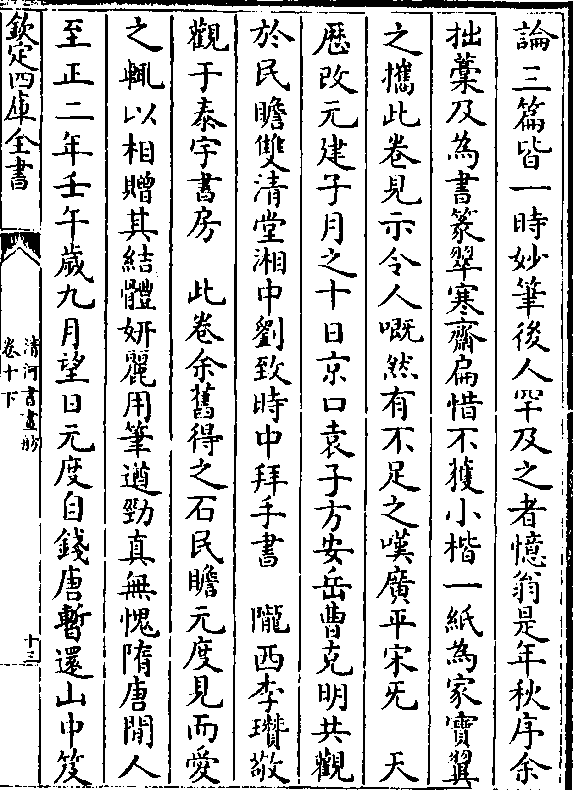 論三篇皆一時妙筆後人罕及之者憶翁是年秋序余
拙藁及為書篆翠寒齋扁惜不獲小楷一紙為家寶翼
之攜此卷見示令人嘅然有不足之嘆廣平宋旡　天
厯改元建子月之十日京口袁子方安岳曹克明共觀
於民瞻雙清堂湘中劉致時中拜手書　隴西李瓚敬
觀于泰宇書房　此卷余舊得之石民瞻元度見而愛
之輒以相贈其結體妍麗用筆遒勁真無愧隋唐間人
至正二年壬午歲九月望日元度自錢唐暫還山中笈
欽定四庫全書
清河書畫舫
卷十下
十三